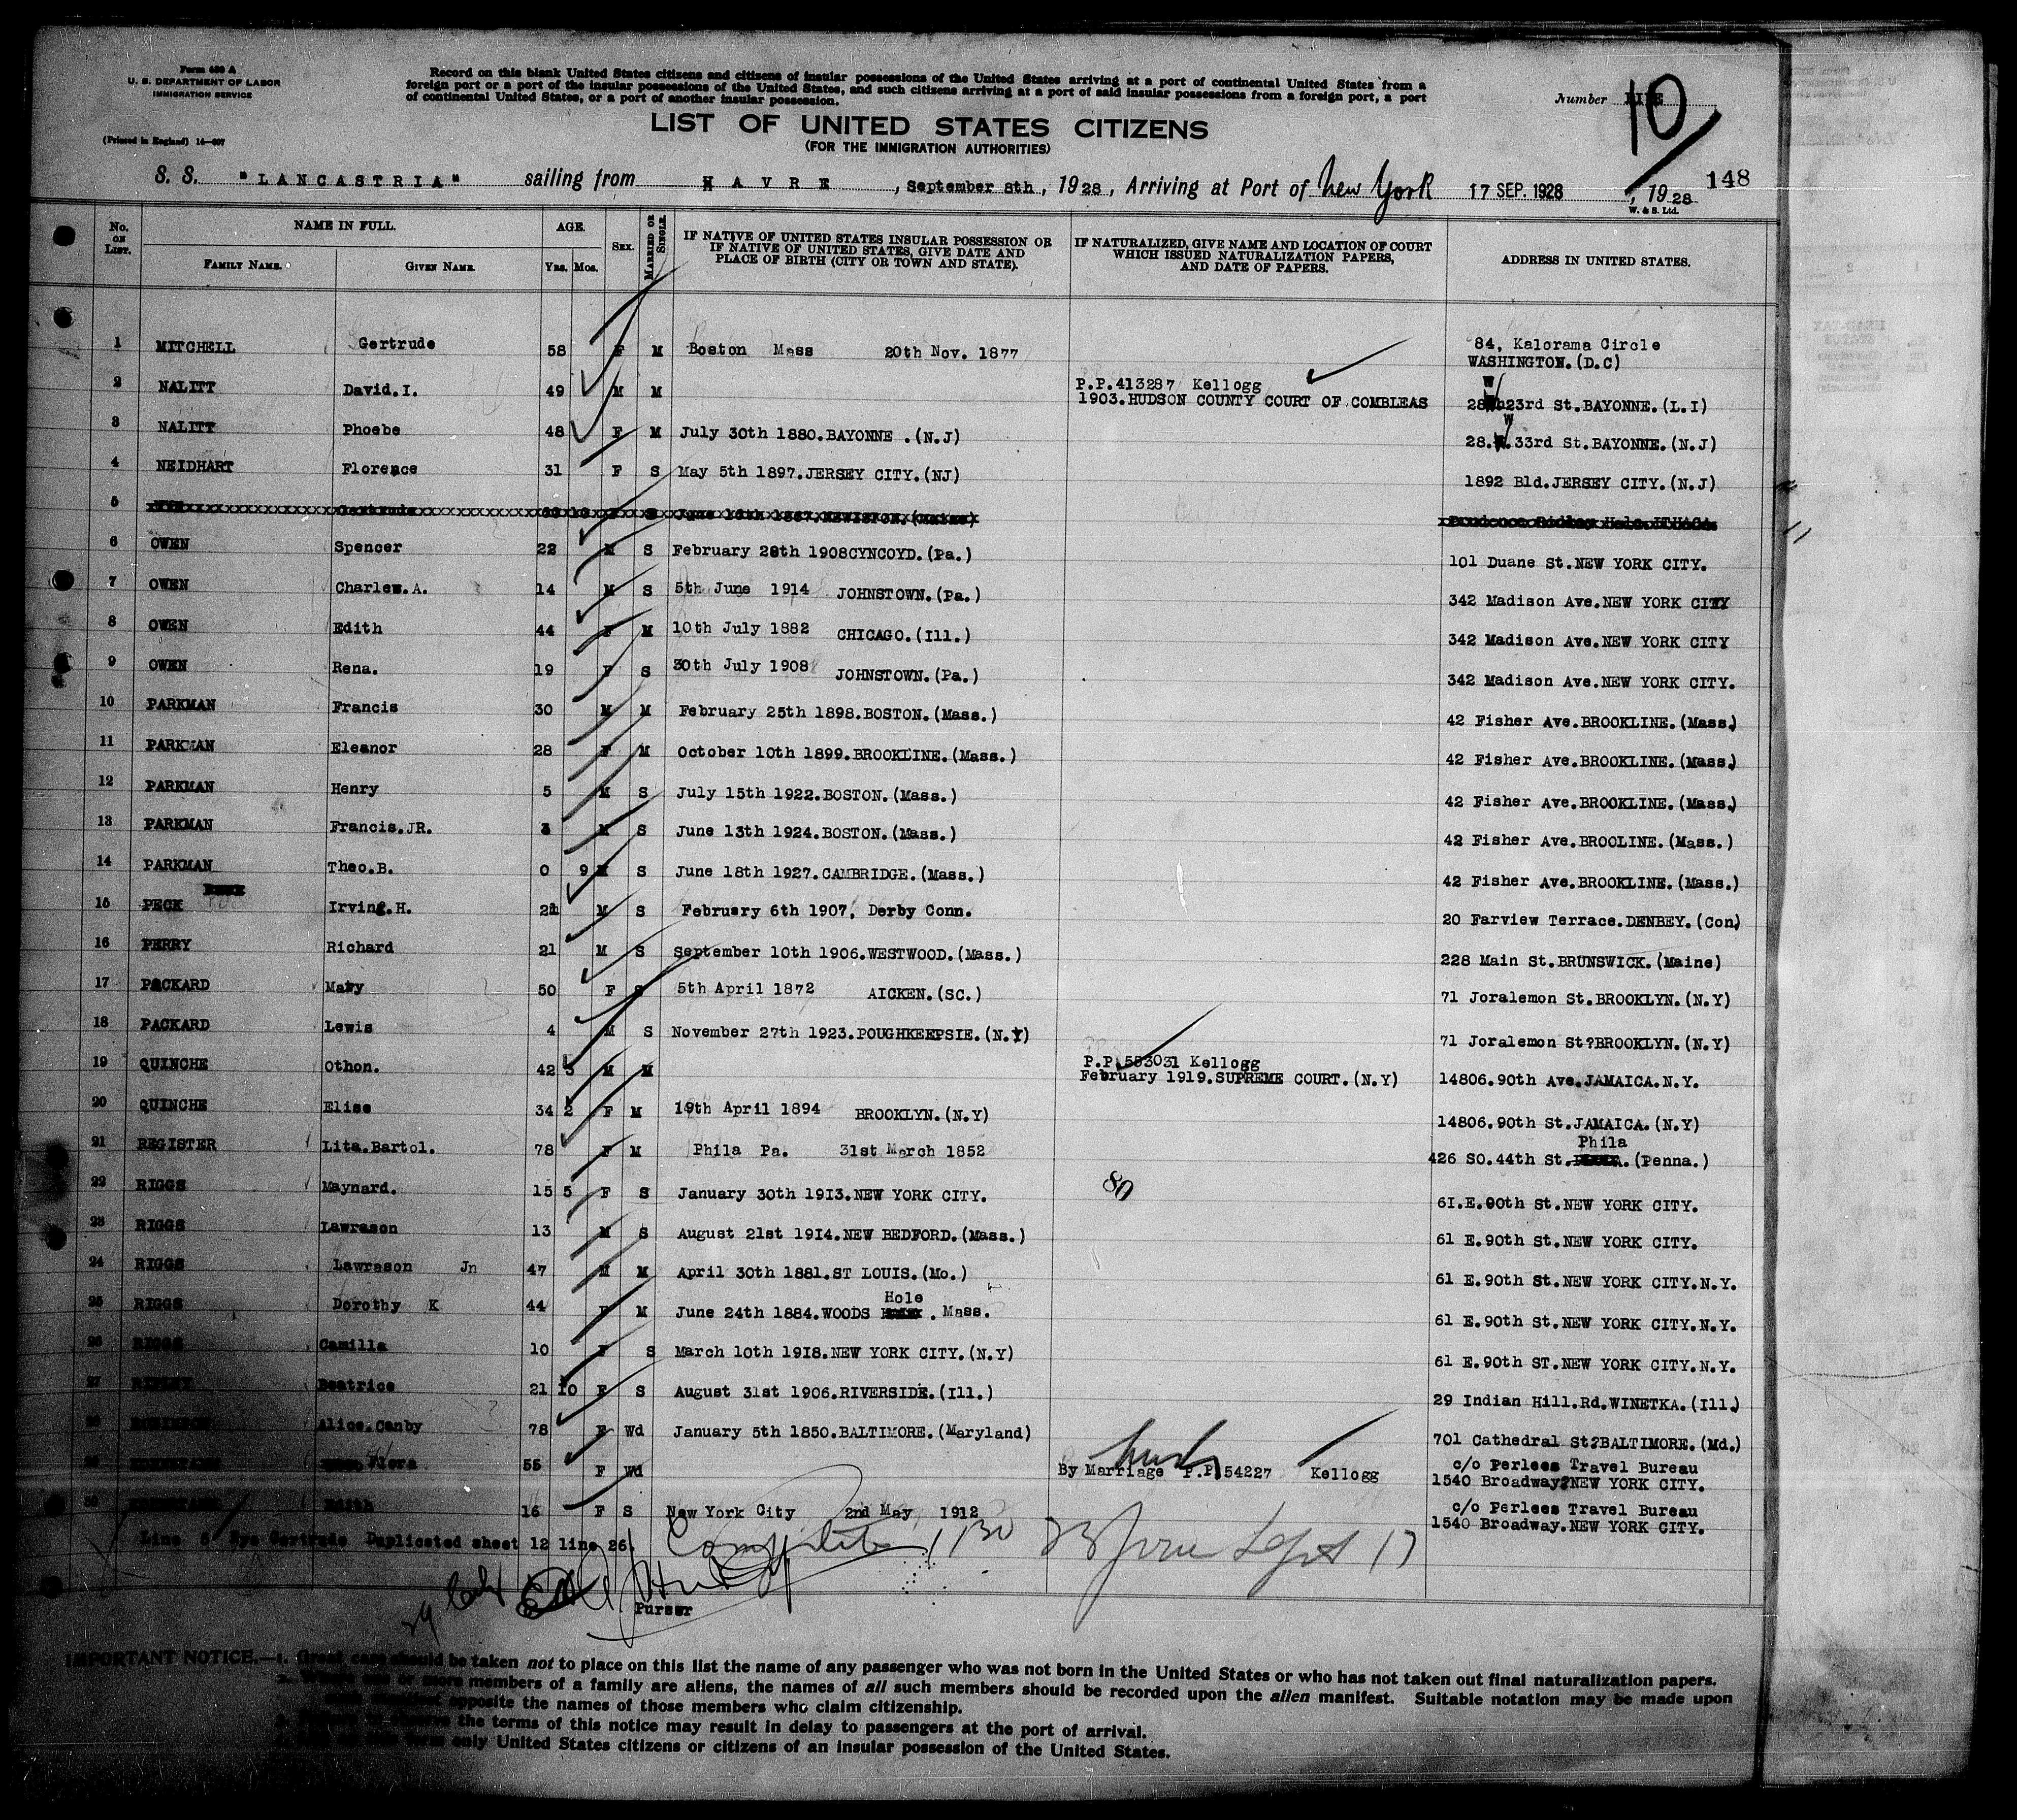 Form 630 A
U. S. DEPARTMENT OF LABOR
IMMIGRATION SERVICE
(Printed in England) 14—607
Record on this blank United States citizens and citizens of insular possessions of the United States arriving at a port of continental United States from a
foreign port or a port of the insular possessions of the United States, and such citizens arriving at a port of said insular possessions from a foreign port, a port
of continental United States, or a port of another insular possession.
Number 10
LIST OF UNITED STATES CITIZENS
(FOR THE IMMIGRATION AUTHORITIES)
S. S. "LANCASTRIA" sailing from HAVRE, September 8th, 1928, Arriving at Port of New York 17 SEP. 1928, 1928 148
W. & S. Ltd.
No. ON LIST. NAME IN FULL. FAMILY NAME. GIVEN NAME. AGE. Yrs. Mos. SEX. MARRIED OR SINGLE. IF NATIVE OF UNITED STATES INSULAR POSSESSION OR IF NATIVE OF UNITED STATES, GIVE DATE AND PLACE OF BIRTH (CITY OR TOWN AND STATE). IF NATURALIZED, GIVE NAME AND LOCATION OF COURT WHICH ISSUED NATURALIZATION PAPERS, AND DATE OF PAPERS. ADDRESS IN UNITED STATES.
1 MITCHELL Gertrude 58 F M Boston Mass 20th Nov. 1877 84, Kalorama Circle
WASHINGTON. (D.C)
2 NALITT David.I. 49 M M P.P.413287 Kellogg
1903.HUDSON COUNTY COURT OF COMBLEAS 28 W 23rd St.BAYONNE.(L.I)
3 NALITT Phoebe 48 F M July 30th 1880.BAYONNE .(N.J) 28.W.33rd St.BAYONNE.(N.J)
4 NEIDHART Florence 31 F S May 5th 1897.JERSEY CITY.(NJ) 1892 Bld.JERSEY CITY.(N.J)
5 Gertrude
6 OWEN Spencer 22 M S February 28th 1908CYNCOYD.(Pa.) 101 Duane St.NEW YORK CITY.
7 OWEN Charlew.A. 14 M S 5th June 1914 JOHNSTOWN.(Pa.) 342 Madison Ave.NEW YORK CITY
8 OWEN Edith 44 F M 10th July 1882 CHICAGO.(Ill.) 342 Madison Ave.NEW YORK CITY
9 OWEN Rena. 19 F S 30th July 1908 JOHNSTOWN.(Pa.) 342 Madison Ave.NEW YORK CITY.
10 PARKMAN Francis 30 M M February 25th 1898.BOSTON.(Mass.) 42 Fisher Ave.BROOKLINE.(Mass)
11 PARKMAN Eleanor 28 F M October 10th 1899.BROOKLINE.(Mass.) 42 Fisher Ave.BROOKLINE.(Mass)
12 PARKMAN Henry 5 M S July 15th 1922.BOSTON.(Mass.) 42 Fisher Ave.BROOKLINE.(Mass)
13 PARKMAN Francis.JR. 3 M S June 13th 1924.BOSTON.(Mass.) 42 Fisher Ave.BROOLINE.(Mass.)
14 PARKMAN Theo.B. 0 9 M S June 18th 1927.CAMBRIDGE.(Mass.) 42 Fisher Ave.BROOKLINE.(Mass.)
15 PECK Irving.H. 21 M S February 6th 1907, Derby Conn. 20 Farview Terrace.DENBEY.(Con)
16 PERRY Richard 21 M S September 10th 1906.WESTWOOD.(Mass.) 228 Main St.BRUNSWICK.(Maine)
17 PACKARD Mary 50 F S 5th April 1872 AICKEN.(SC.) 71 Joralemon St.BROOKLYN.(N.Y)
18 PACKARD Lewis 4 M S November 27th 1923.POUGHKEEPSIE.(N.Y) 71 Joralemon St?BROOKLYN.(N.Y)
19 QUINCHE Othon. 42 3 M M P.P.553031 Kellogg
February 1919.SUPREME COURT.(N.Y) 14806.90th Ave.JAMAICA.N.Y.
20 QUINCHE Elise 34 2 F M 19th April 1894 BROOKLYN.(N.Y) 14806.90th St.JAMAICA.(N.Y)
21 REGISTER Lita.Bartol. 78 F M Phila Pa. 31st March 1852 426 SO.44th St. Phila. (Penna.)
22 RIGGS Maynard. 15 5 F S January 30th 1913.NEW YORK CITY. 80 61.E.90th St.NEW YORK CITY.
23 RIGGS Lawrason 13 M S August 21st 1914.NEW BEDFORD.(Mass.) 61 E.90th St.NEW YORK CITY.
24 RIGGS Lawrason Jn 47 M M April 30th 1881.ST LOUIS.(Mo.) 61 E.90th St.NEW YORK CITY.N.Y.
25 RIGGS Dorothy K 44 F M June 24th 1884.WOODS Hole . Mass. 61 E.90th St.NEW YORK CITY.N.Y.
26 RIGGS Camilla 10 F S March 10th 1918.NEW YORK CITY.(N.Y) 61 E.90th ST.NEW YORK CITY.N.Y.
27 Beatrice 21 10 F S August 31st 1906.RIVERSIDE.(Ill.) 29 Indian Hill.Rd.WINETKA.(Ill)
28 Alice.Canby 78 F Wd January 5th 1850.BALTIMORE.(Maryland) 701 Cathedral St?BALTIMORE.(Md.)
29 Flora 55 F Wd By Marriage P.P.54227 Kellogg c/o Perlees Travel Bureau
1540 Broadway?NEW YORK CITY.
30 Edith 16 F S New York City 2nd May 1912 c/o Perlees Travel Bureau
1540 Broadway.NEW YORK CITY.
Line 5 Nye Gertrude Duplicated sheet 12 line 26.
Complete 1130 Sept 17
Purser
IMPORTANT NOTICE.—1. Great care should be taken not to place on this list the name of any passenger who was not born in the United States or who has not taken out final naturalization papers.
2. Where one or more members of a family are aliens, the names of all such members should be recorded upon the alien manifest. Suitable notation may be made upon
opposite the names of those members who claim citizenship.
the terms of this notice may result in delay to passengers at the port of arrival.
only United States citizens or citizens of an insular possession of the United States.